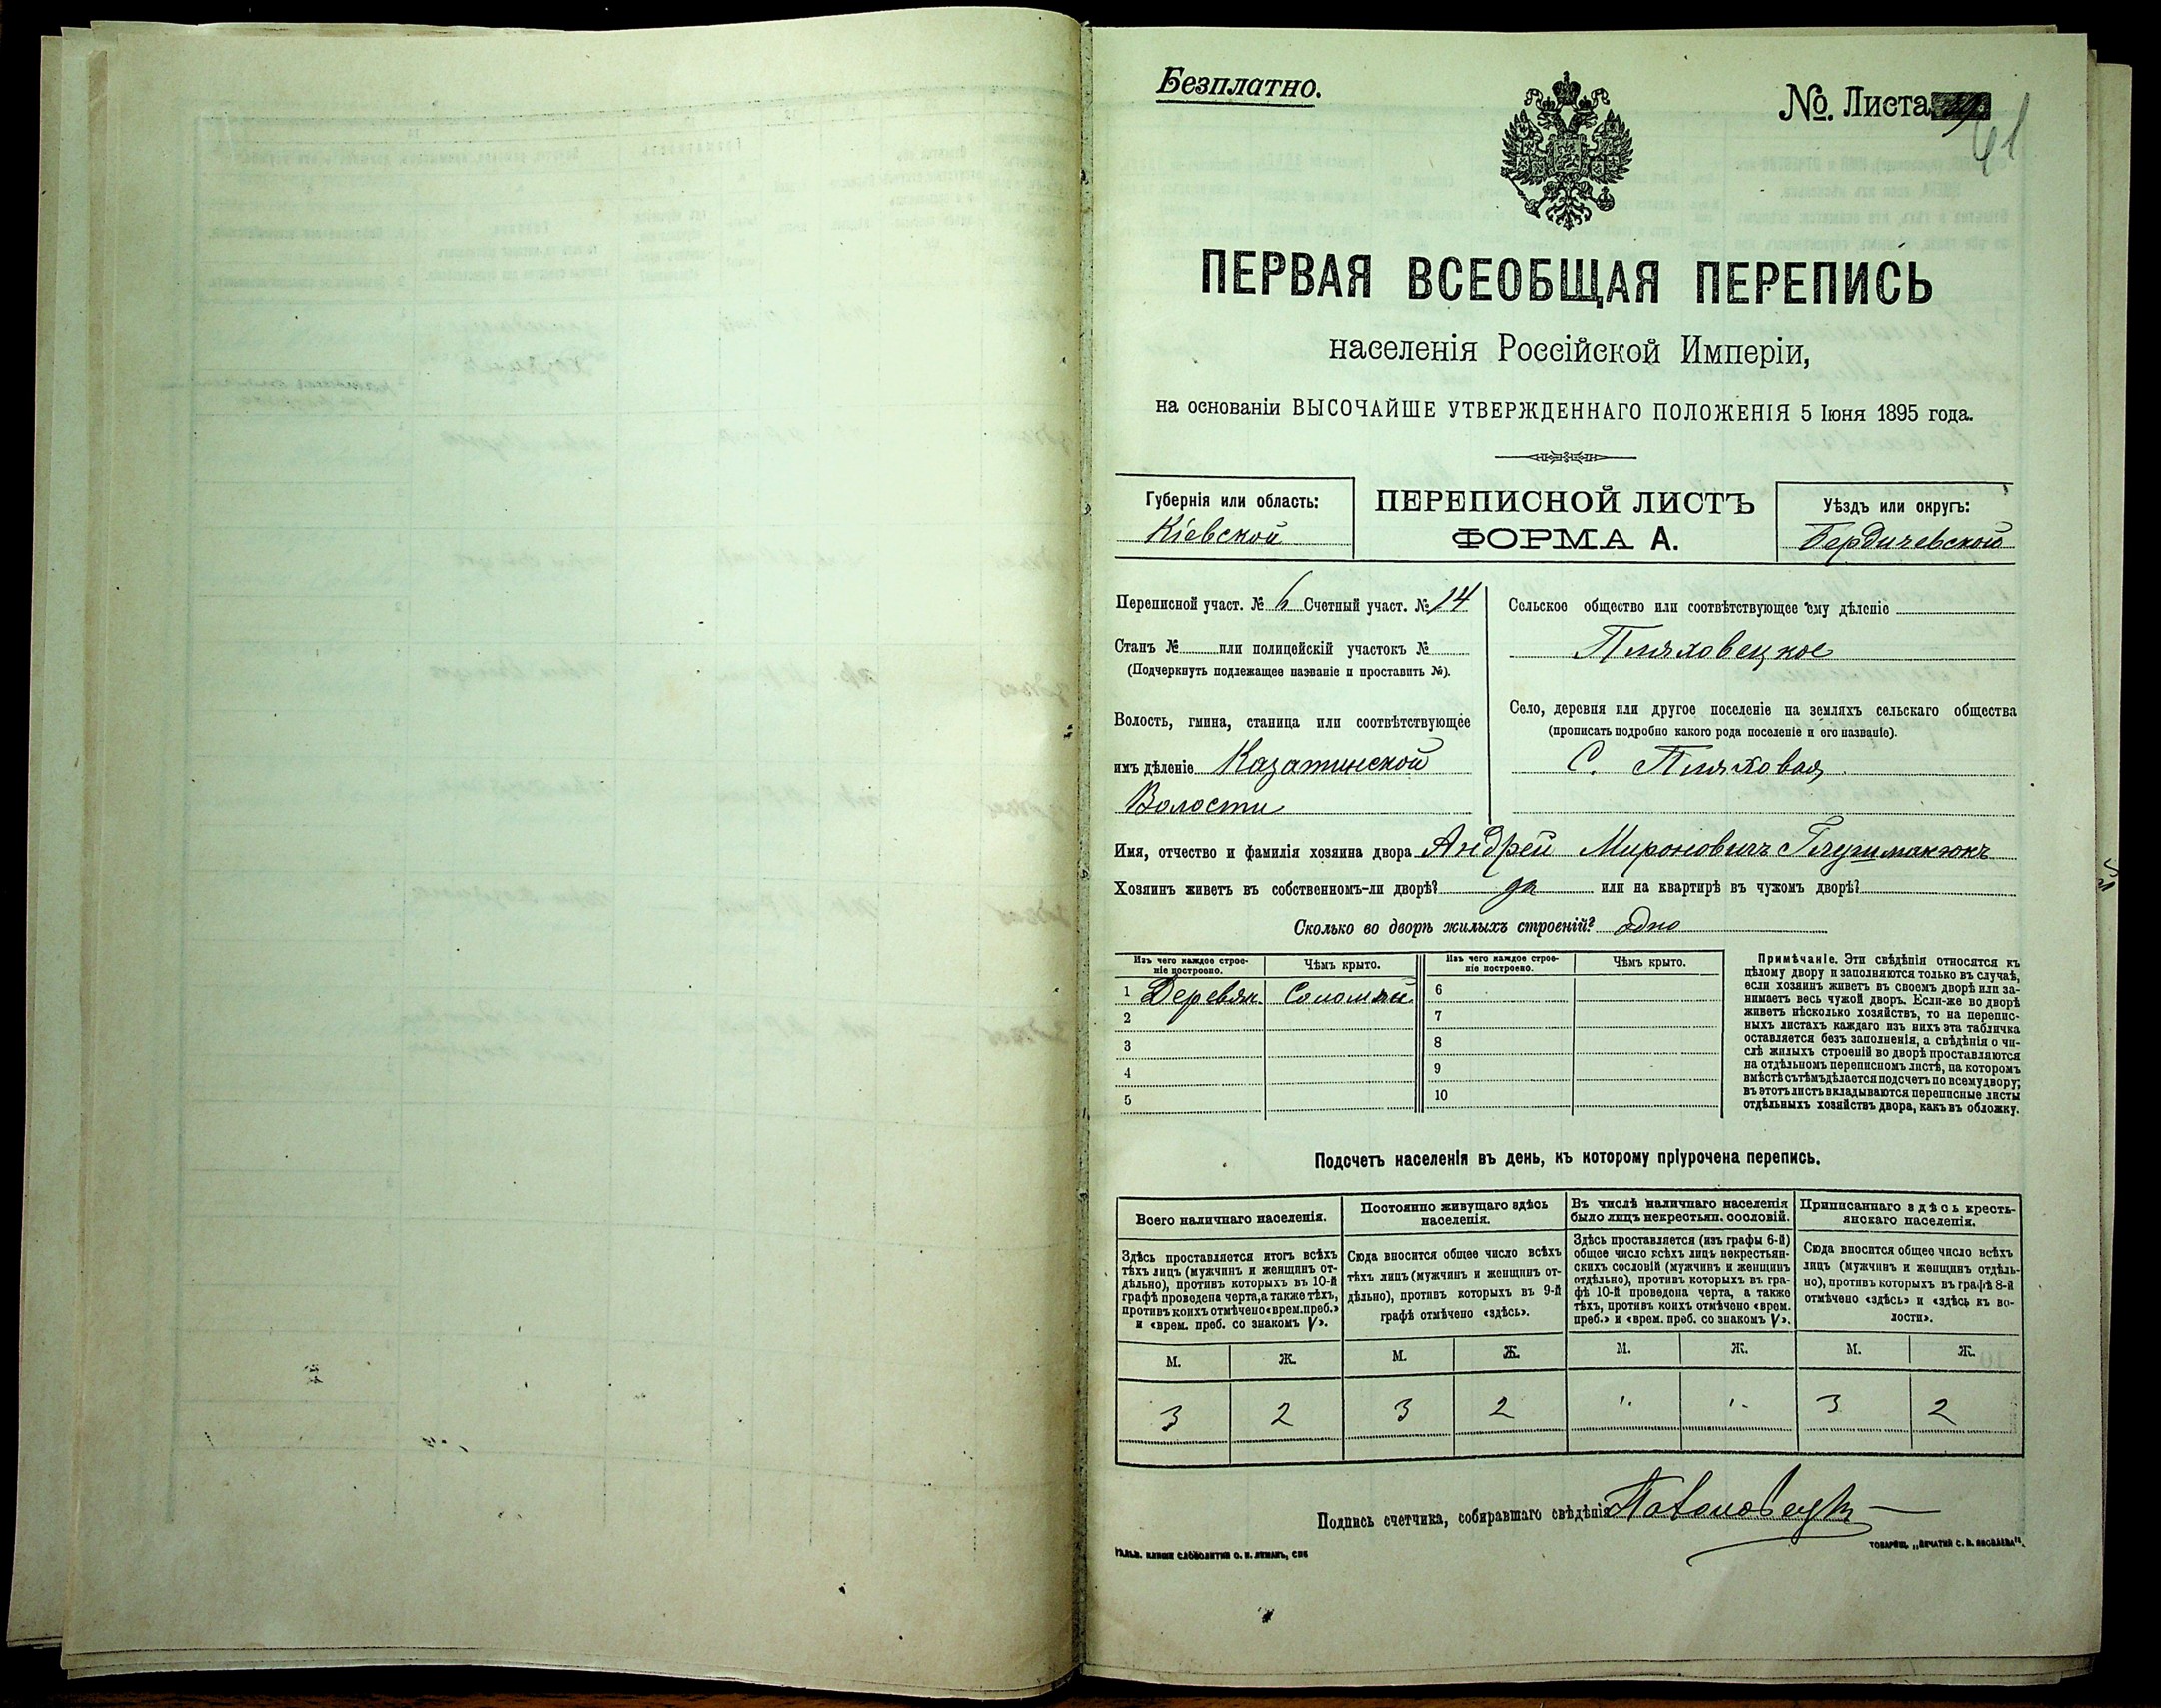 Безплатно.
№. Листа
61
ПЕРВАЯ ВСЕОБЩАЯ ПЕРЕПИСЬ
населенія Россійской Имперіи,
на основаніи ВЫСОЧАЙШЕ УТВЕРЖДЕННАГО ПОЛОЖЕНІЯ 5 Іюня 1895 года.
Губернія или область:
Кіевской
ПЕРЕПИСНОЙ ЛИСТЪ
ФОРМА А.
Уѣздъ или округъ:
Бердичевского
Переписной участ. № 6 Счетный участ. № 14
Станъ № или полицейскій участокъ №
(Подчеркнуть подлежащее названіе и проставить №).
Волость, гмина, станица или соотвѣтствующее
имъ дѣленіе Казатинской
Волости
Сельское общество или соотвѣтствующее ему дѣленіе
Пляховецкое
Село, деревня или другое поселеніе на земляхъ сельскаго общества
(прописать подробно какого рода поселеніе и его названіе).
С. Пляховая
Имя, отчество и фамилія хозяина двора Андрей Мироновичъ
Хозяинъ живетъ въ собственномъ-ли дворѣ? да или на квартирѣ въ чужомъ дворѣ?
Сколько во дворѣ жилыхъ строеній? одно
Изъ чего каждое строе-
ніе построено.
Чѣмъ крыто.
Изъ чего каждое строе-
ніе построено.
Чѣмъ крыто.
1 Деревян. Соломян. 6
2 7
3 8
4 9
5 10
Примѣчаніе. Эти свѣдѣнія относятся къ
цѣлому двору и заполняются только въ случаѣ,
если хозяинъ живетъ въ своемъ дворѣ или за-
нимаетъ весь чужой дворъ. Если-же во дворѣ
живетъ нѣсколько хозяйствъ, то на перепис-
ныхъ листахъ каждаго изъ нихъ эта табличка
оставляется безъ заполненія, а свѣдѣнія о чи-
слѣ жилыхъ строеній во дворѣ проставляются
на отдѣльномъ переписномъ листѣ, на которомъ
вмѣстѣ съ тѣмъ дѣлается подсчетъ по всему двору;
въ этотъ листъ вкладываются переписные листы
отдѣльныхъ хозяйствъ двора, какъ въ обложку.
Подсчетъ населенія въ день, къ которому пріурочена перепись.
Всего наличнаго населенія.
Здѣсь проставляется итогъ всѣхъ
тѣхъ лицъ (мужчинъ и женщинъ от-
дѣльно), противъ которыхъ въ 10-й
графѣ проведена черта, а также тѣхъ,
противъ коихъ отмѣчено «врем. преб.»
и «врем. преб. со знакомъ V».
М. Ж.
3 2
Постоянно живущаго здѣсь
населенія.
Сюда вносится общее число всѣхъ
тѣхъ лицъ (мужчинъ и женщинъ от-
дѣльно), противъ которыхъ въ 9-й
графѣ отмѣчено «здѣсь».
М. Ж.
3 2
Въ числѣ наличнаго населенія
было лицъ некрестьян. сословій.
Здѣсь проставляется (изъ графы 6-й)
общее число всѣхъ лицъ некрестьян-
скихъ сословій (мужчинъ и женщинъ
отдѣльно), противъ которыхъ въ гра-
фѣ 10-й проведена черта, а также
тѣхъ, противъ коихъ отмѣчено «врем.
преб.» и «врем. преб. со знакомъ V».
М. Ж.
". ".
Приписаннаго здѣсь кресть-
янскаго населенія.
Сюда вносится общее число всѣхъ
лицъ (мужчинъ и женщинъ отдѣль-
но), противъ которыхъ въ графѣ 8-й
отмѣчено «здѣсь» и «здѣсь къ во-
лости».
М. Ж.
3 2
Подпись счетчика, собиравшаго свѣдѣнія
ТОВАРИЩ. „ПЕЧАТНЯ С. П. ЯКОВЛЕВА“.